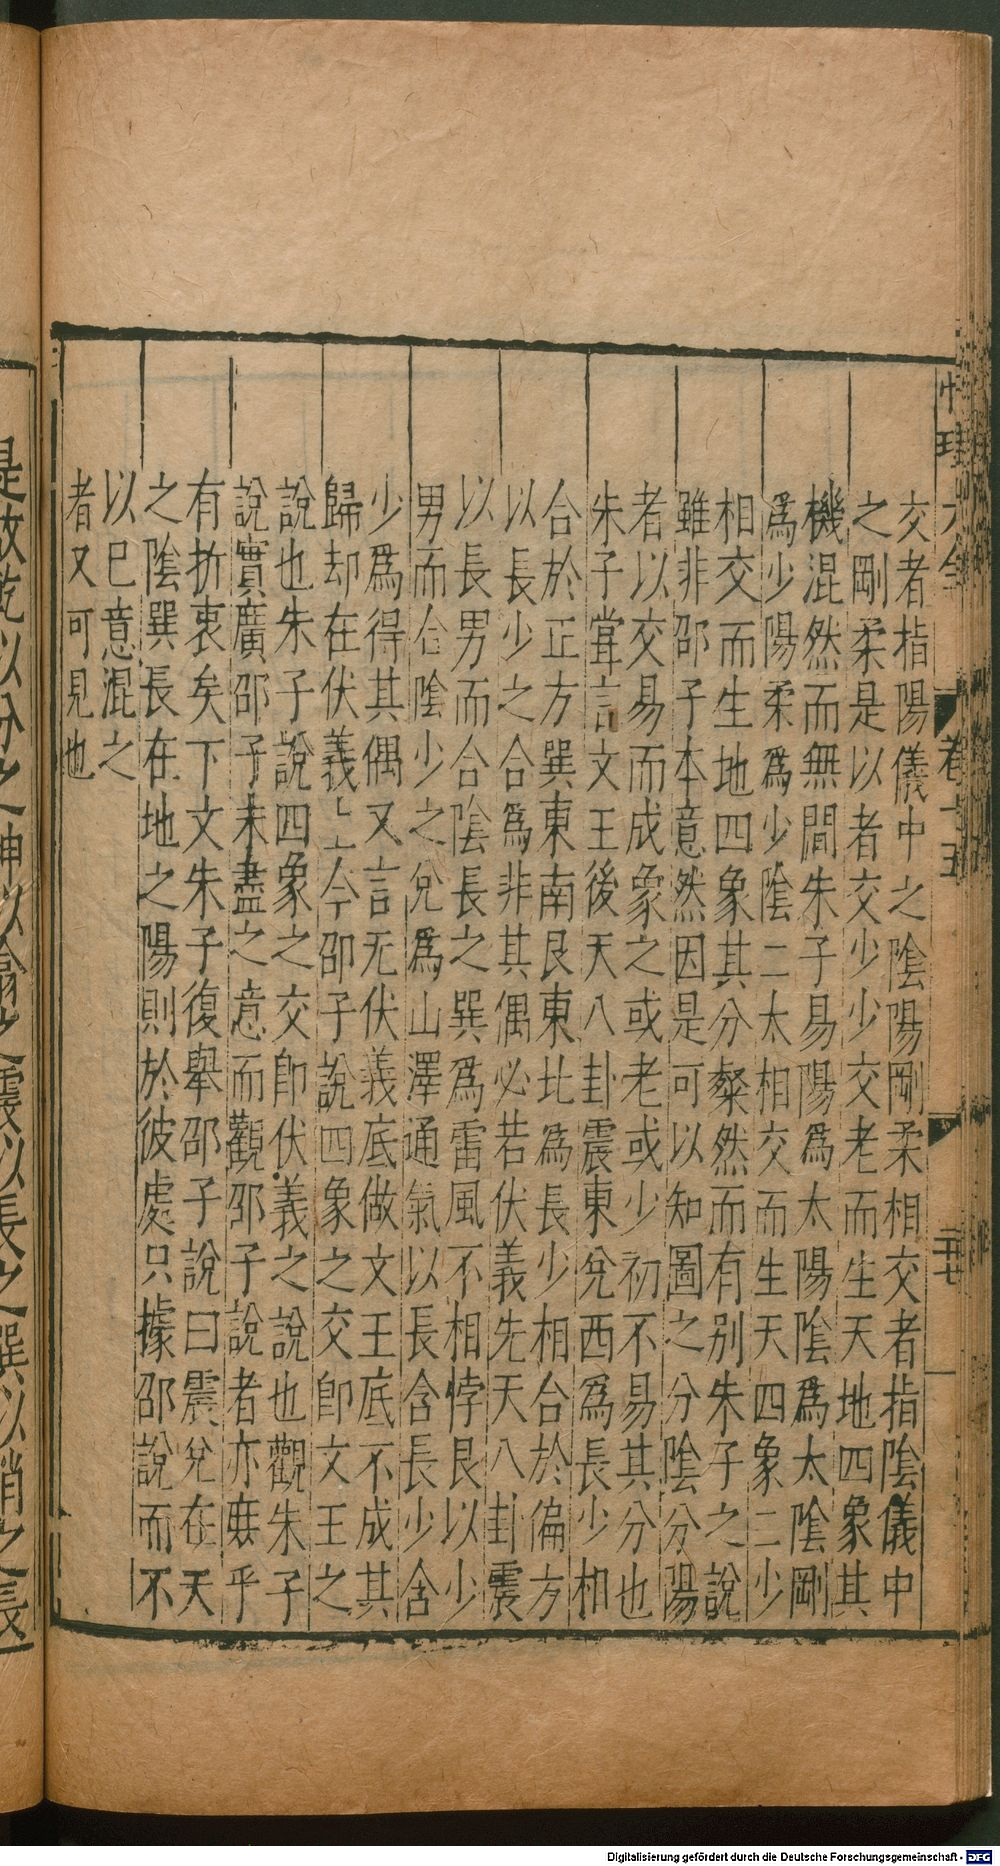 性理大全
卷十五
二十七
交者指陽儀中之陰陽剛柔相交者指陰儀中
之剛柔是以者交少少交老而生天地四象其
機混然而無間朱子易陽為太陽陰為太陰剛
為少陽柔為少陰二太相交而生天四象二少
相交而生地四象其分粲然而有別朱子之說
雖非邵子本意然因是可以知圖之分陰分陽
者以交易而成象之或老或少初不易其分也
朱子嘗言文王後天八卦震東兌西為長少相
合於正方巽東南艮東北為長少相合於偏方
以長少之合為非其偶必若伏義先天八卦震
以長男而合陰長之巽為雷風不相悖艮以少
男而合陰少之兌為山澤通氣以長含長少含
少為得其偶又言无伏義底做文王底不成其
歸却在伏義上今邵子說四象之交卽文王之
說也朱子說四象之交卽伏義之說也觀朱子
說實廣邵子未盡之意而觀邵子說者亦庶乎
有折衷矣下文朱子復舉邵子說曰震兌在天
之陰巽長在地之陽則於彼處只據邵說而不
以巳意混之
者又可見也
是故乾以分之坤以翕之震以長之巽以消之長
Digitalisierung gefördert durch die Deutsche Forschungsgemeinschaft - DFG